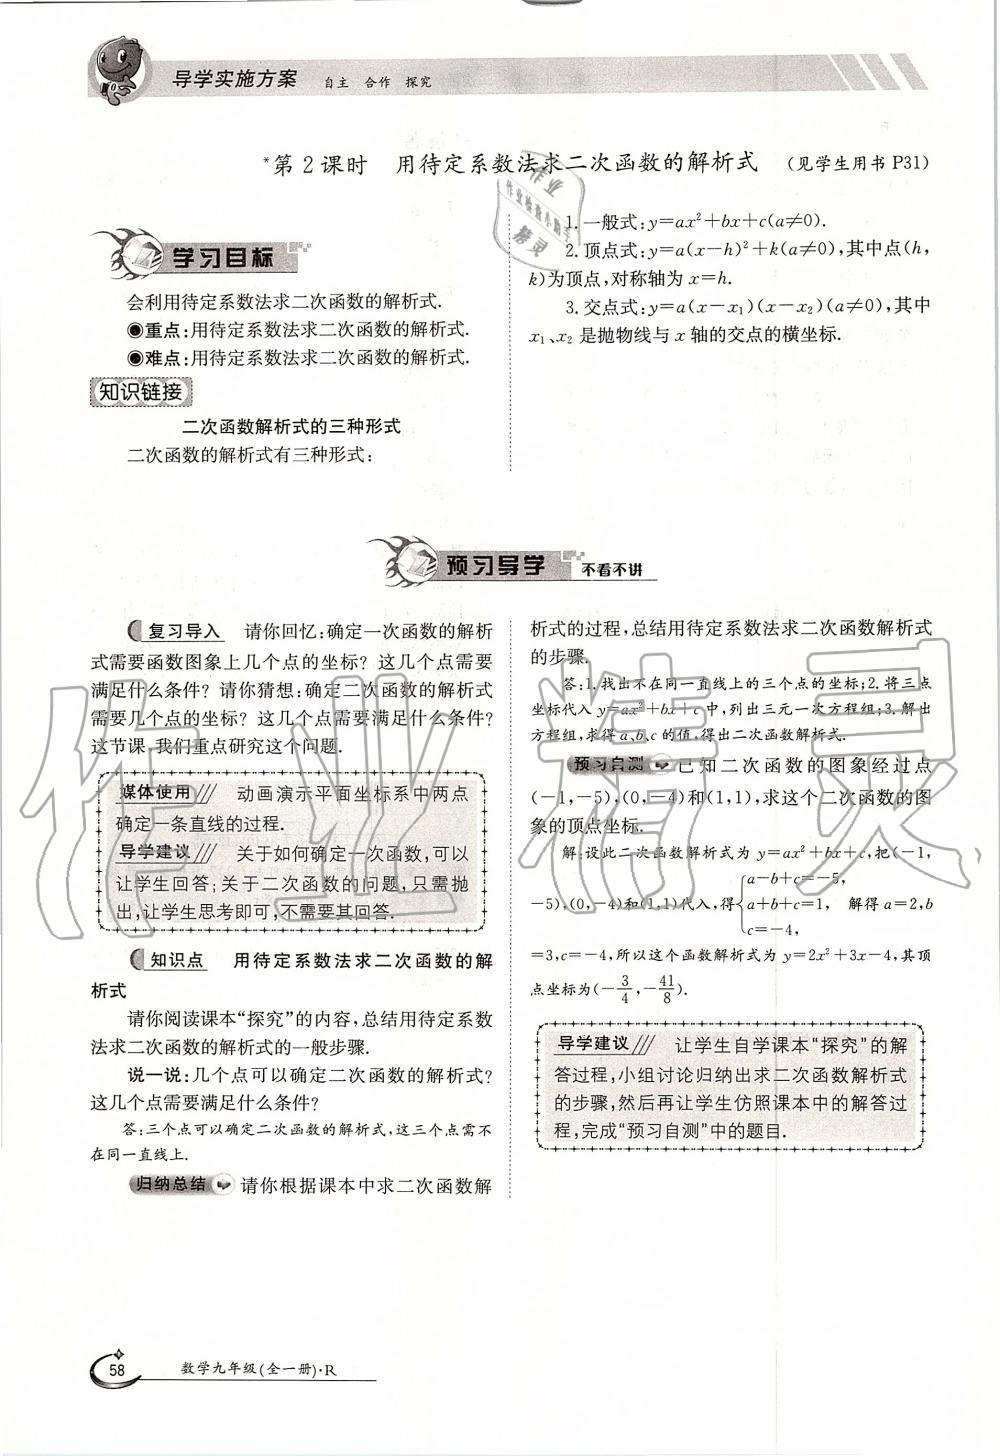 导学实施方案 自主 合作 探究
*第2课时 用待定系数法求二次函数的解析式 (见学生用书P31)
学习目标
会利用待定系数法求二次函数的解析式.
◉重点:用待定系数法求二次函数的解析式.
◉难点:用待定系数法求二次函数的解析式.
知识链接
二次函数解析式的三种形式
二次函数的解析式有三种形式:
1.一般式:y=ax²+bx+c(a≠0).
2.顶点式:y=a(x-h)²+k(a≠0),其中点(h,
k)为顶点,对称轴为x=h.
3.交点式:y=a(x-x₁)(x-x₂)(a≠0),其中
x₁、x₂是抛物线与x轴的交点的横坐标.
预习导学 不看不讲
复习导入 请你回忆:确定一次函数的解析
式需要函数图象上几个点的坐标? 这几个点需要
满足什么条件? 请你猜想:确定二次函数的解析式
需要几个点的坐标? 这几个点需要满足什么条件?
这节课,我们重点研究这个问题.
媒体使用 动画演示平面坐标系中两点
确定一条直线的过程.
导学建议 关于如何确定一次函数,可以
让学生回答;关于二次函数的问题,只需抛
出,让学生思考即可,不需要其回答.
知识点 用待定系数法求二次函数的解
析式
请你阅读课本“探究”的内容,总结用待定系数
法求二次函数的解析式的一般步骤.
说一说:几个点可以确定二次函数的解析式?
这几个点需要满足什么条件?
答:三个点可以确定二次函数的解析式,这三个点需不
在同一直线上.
归纳总结 请你根据课本中求二次函数解
析式的过程,总结用待定系数法求二次函数解析式
的步骤.
答:1.找出不在同一直线上的三个点的坐标;2.将三点
坐标代入y=ax²+bx+c中,列出三元一次方程组;3.解出
方程组,求得a、b、c的值,得出二次函数解析式.
预习自测 已知二次函数的图象经过点
(-1,-5),(0,-4)和(1,1),求这个二次函数的图
象的顶点坐标.
解:设此二次函数解析式为y=ax²+bx+c,把(-1,
a-b+c=-5,
-5),(0,-4)和(1,1)代入,得{a+b+c=1, 解得a=2,b
c=-4,
=3,c=-4,所以这个函数解析式为y=2x²+3x-4,其顶
点坐标为(-3/4,-41/8).
导学建议 让学生自学课本“探究”的解
答过程,小组讨论归纳出求二次函数解析式
的步骤,然后再让学生仿照课本中的解答过
程,完成“预习自测”中的题目.
58 数学九年级(全一册)·R
作业精灵
作业
作业检查小助手
精灵